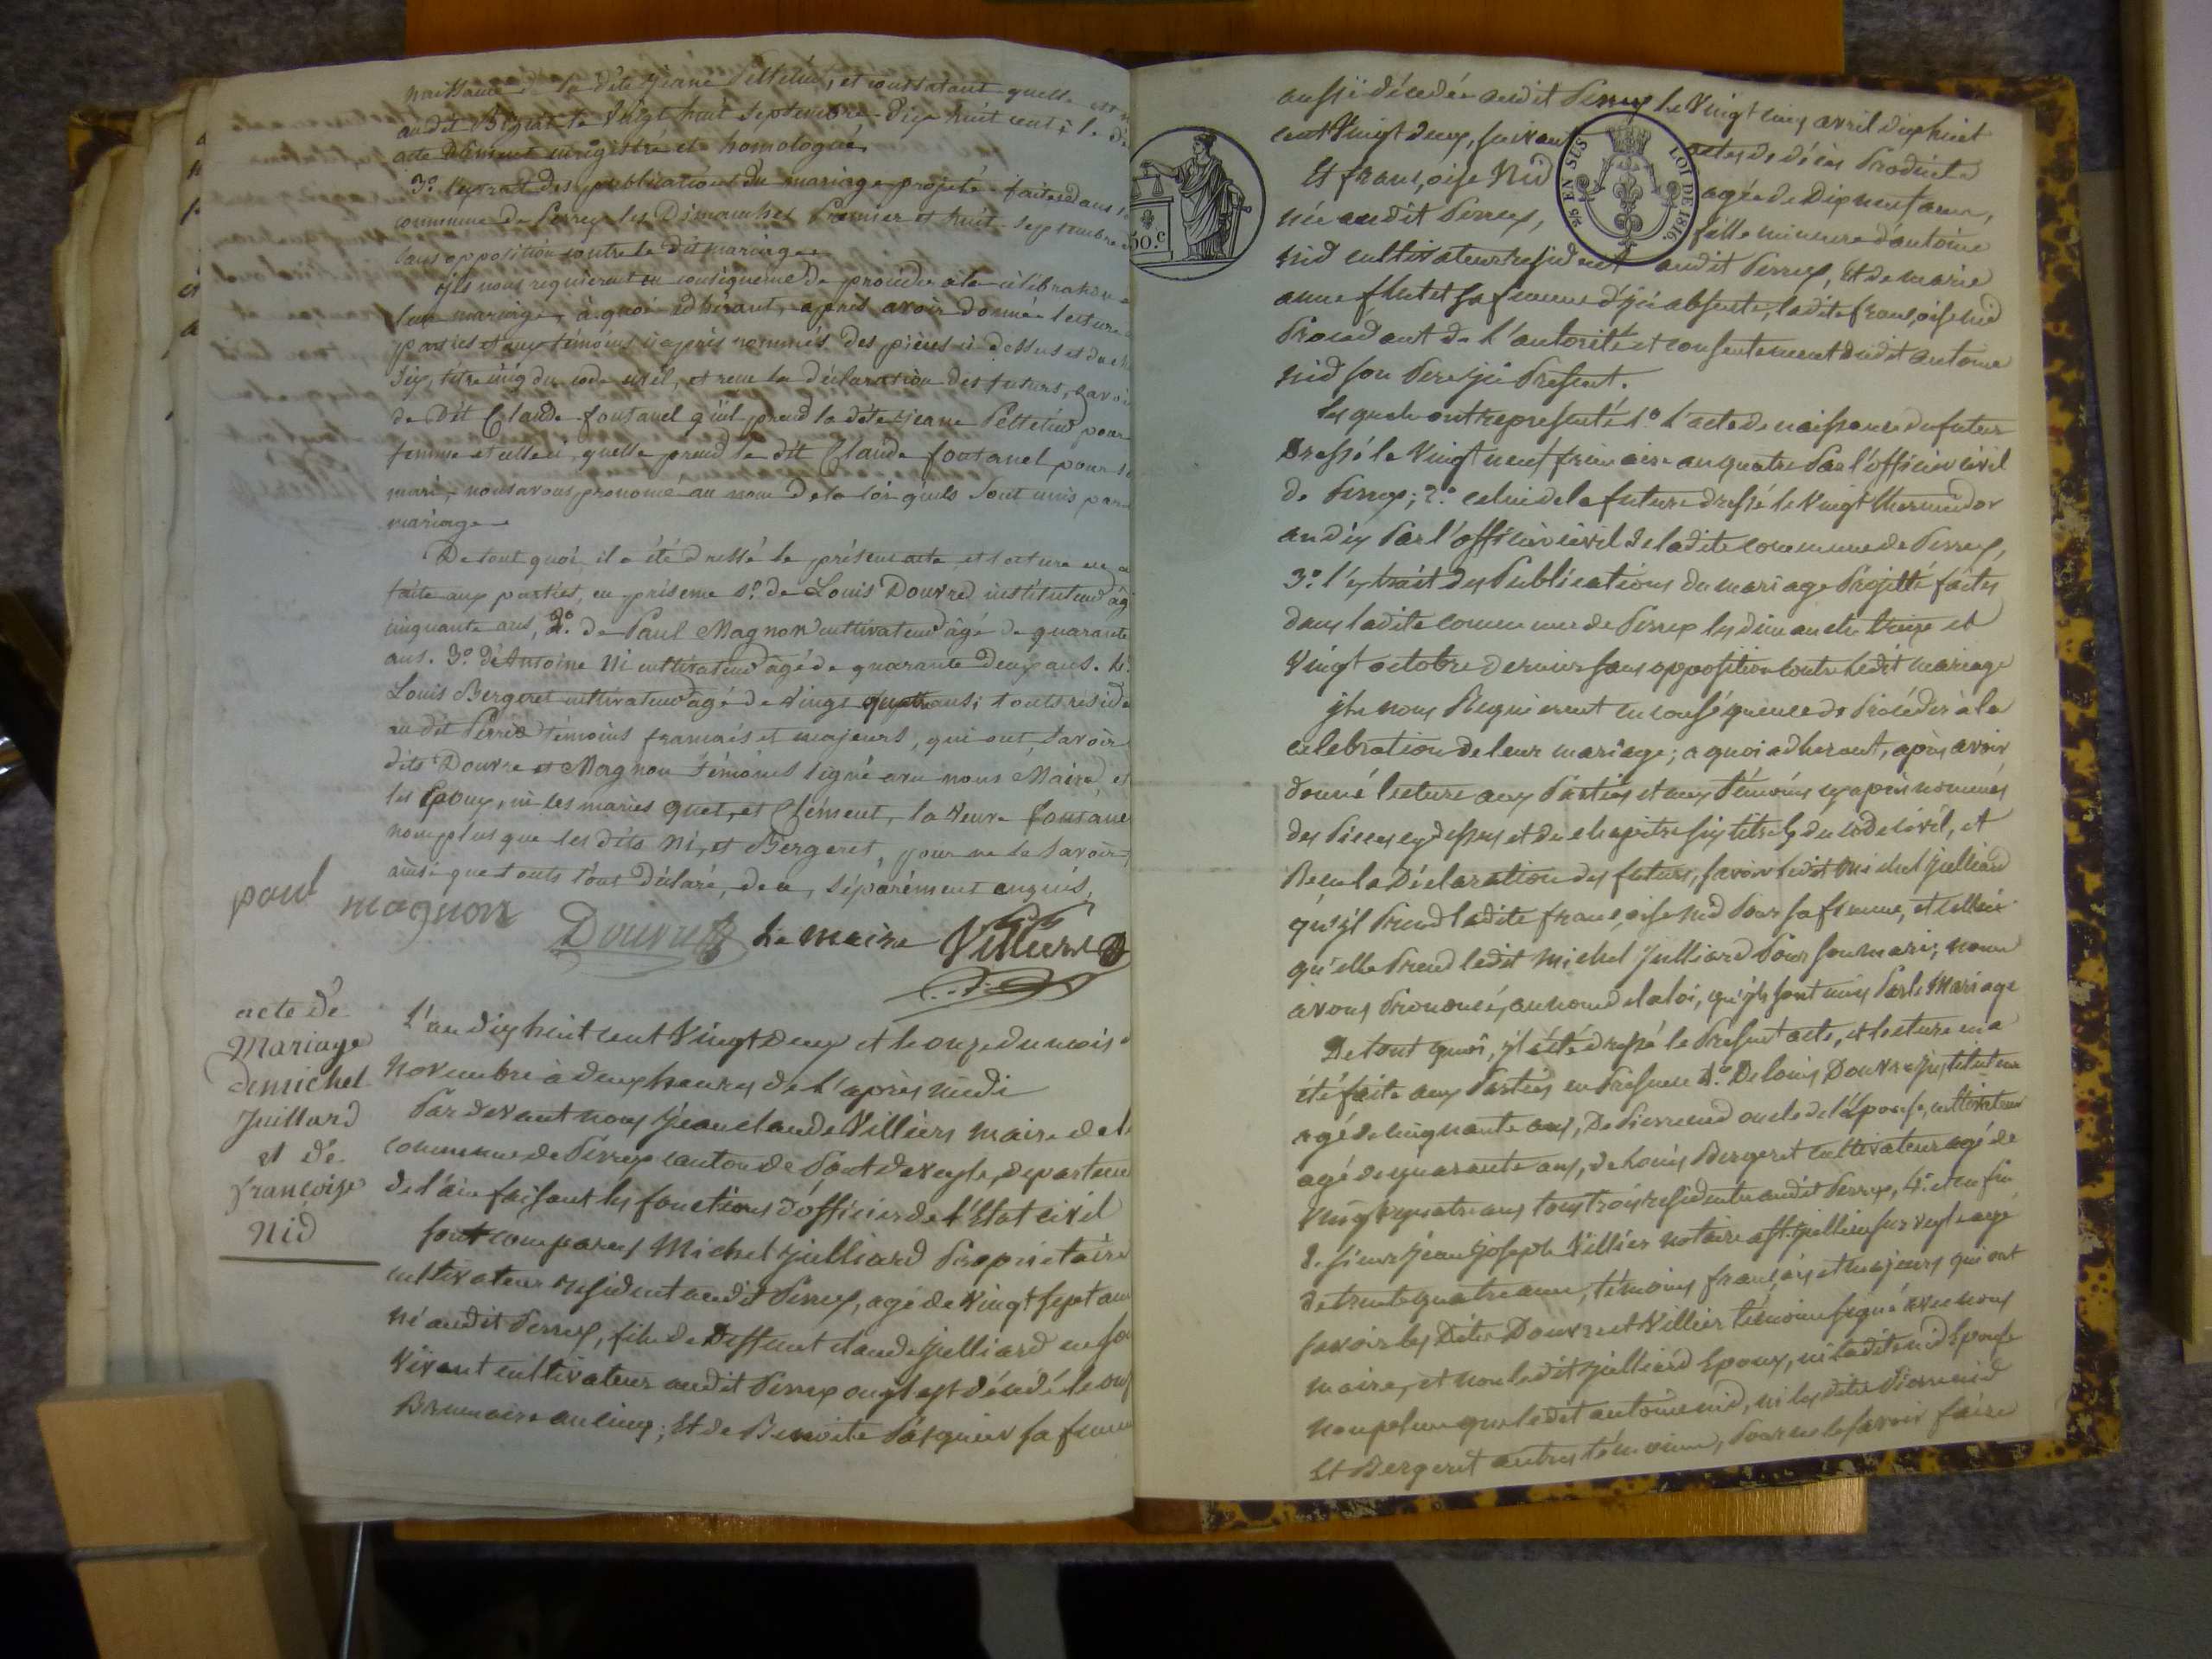 naissance de la dite Jeanne Pelletier, et constatant quelle est
audit Bizias le Vingt huit Septembre Dix huit cent, le dit
acte Dument enrégistré et homologué,
3.o l'extrait des publications du mariage projeté faites dans la
commune de Perrex les Dimanches Premier et huit Septembre
sans opposition contre le dit mariage.
ils nous requierent en conséquence de proceder à la célébration
leur mariage, à quoi adhérant, après avoir donné lecture
parties et aux témoins ci après nommés des pièces ci dessus et du ch
Six, titre cinq du code civil, et reçu la déclaration des futurs, savoir
de Dit Claude fontanel qu'il prend la dite Jeanne Pelletier pour
femme et celle ci, quelle prend le dit Claude fontanel pour
mari, nous avons prononcé au nom de la loi qu'ils sont unis par
mariage
De tout quoi, il a été dressé le présent acte et lecture en a
faite aux parties, en présence 1.o de Louis Douvre instituteur âgé
cinquante ans, 2.o de Paul Magnon cultivateur âgé de quarante
ans. 3.o d'Antoine Ni cultivateur âgé de quarante deux ans. 4.o
Louis Bergeret cultivateur agé de vingt quatre ans; touts reside
au dit Perrex témoins francais et majeurs, qui ont, savoir
dits Douvre et Magnon témoins signé avec nous Maire, et
les Epoux, ni les mariés quet, et Clément, la veuve fontanel
non plus que les dits Ni, et Bergeret, pour ne le savoir
ainsi que touts l'ont déclaré, de ce, séparément enquis,
paul magnon Douvre Le maire Villiers
acte de
Mariage
de michel
Juillard
et de
françoise
Nid
L'an dix huit cent Vingt deux et le onze du mois
Novembre à deux heures de l'après midi
Par devant nous Jean claude Villiers maire de la
commune de Perrex canton de Pont de veyle, departement
de l'ain faisant les fonctions d'officier de l'Etat civil
Sont comparus Michel Julliard Propriétaire
cultivateur résident audit Perrex, agé de Vingt sept ans
né audit Perrex, fils de Deffunt claude Julliard en son
Vivant cultivateur audit Perrex ou il est décédé le onze
Brumaire an cinq; Et de Benoite Pasquier sa femme
aussi décédée audit Perrex le Vingt cinq avril dix huit
cent Vingt deux, suivant actes de décès Produits
Et françoise Nid agée de Dix neuf ans,
née audit Perrex, fille mineure d'antoine
nid cultivateur résident audit Perrex, Et de marie
anne flutet sa femme d'ici absente; ladite françoise nid
Procédant de l'autorité et consentement dudit antoine
nid son Pere ici Présent.
Lesquels ont représenté 1.o l'acte de naissance du futur
Dressé le Vingt neuf frimaire an quatre Par l'officier civil
de Perrex; 2.o celui de la future dressé le Vingt thermidor
an dix Par l'officier civil de ladite commune de Perrex,
3.o l'extrait des Publications du mariage Projetté faites
dans ladite commune de Perrex les dimanche treize et
Vingt octobre dernier sans opposition contre ledit mariage
ils nous Requierent en conséquence de Procéder à la
celebration de leur mariage; a quoi adherant, après avoir
donné lecture aux Parties et aux témoins cy après nommés
des Pieces cy dessus et du chapitre six titre 5 du code civil, et
Recu la Déclaration des futurs, savoir ledit Michel Julliard
qu'il Prend ladite françoise nid Pour sa femme, et celle ci
qu'elle Prend ledit Michel Julliard Pour son mari; nous
avons Prononcé, au nom de la loi, qu'ils sont unis Par le Mariage
De tout quoi, il a été dressé le Présent acte, et lecture en a
été faite aux Parties en Présence 1.o De louis Douvre Instituteur
agé de cinquante ans, De Pierre nid oncle de l'Epouse, cultivateur
agé de quarante ans, de Louis Bergeret cultivateur agé de
Vingt quatre ans tous trois residents audit Perrex, 4.o et enfin
de sieur Jean Joseph Villier notaire a St. Jullien sur veyle agé
de trente quatre ans, témoins français et majeurs qui ont
savoir les Dits Douvre et Villier témoins signé avec nous
maire, et non ledit Julliard Epoux, ni ladite nid Epouse
non plus que ledit antoine nid, ni les dits Pierre nid
Et Bergeret autres témoins, Pour ne le savoir faire
50.c
EN SUS
LOI DE 1816.